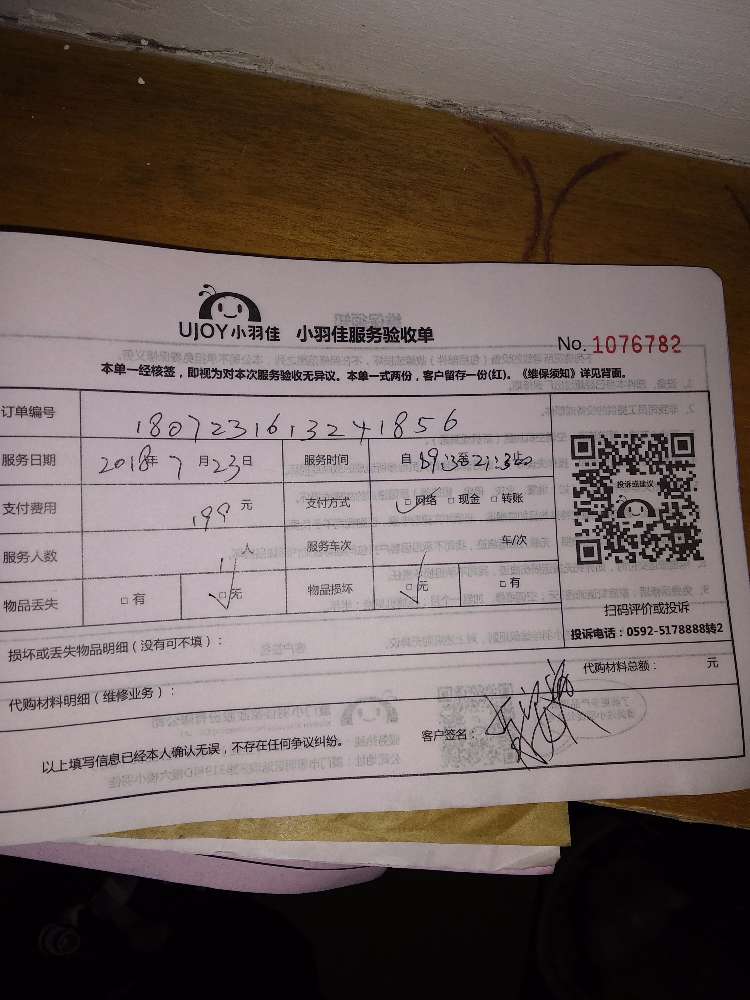 UJOY小羽佳 小羽佳服务验收单
No. 1076782
本单一经核签，即视为对本次服务验收无异议。本单一式两份，客户留存一份(红)。《维保须知》详见背面。
订单编号 1807231613241856
服务日期 2018年7月23日 服务时间 自 19:30至21:30止
支付费用 199元 支付方式 □网络 □现金 □转账
服务人数 1人 服务车次 车/次
物品丢失 □有 □无 物品损坏 □无 □有
投诉或建议
扫码评价或投诉
投诉电话：0592-5178888转2
损坏或丢失物品明细（没有可不填）：
代购材料明细（维修业务）： 代购材料总额： 元
以上填写信息已经本人确认无误，不存在任何争议纠纷。 客户签名：